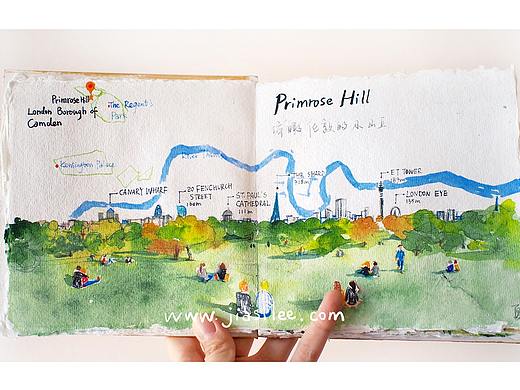 Primrose Hill
London Borough of
Camden
The Regent's
Park
Kensington Palace
Primrose Hill
River Thames
CANARY WHARF
20 FENCHURCH
STREET
160m
ST PAUL'S
CATHEDRAL
111m
THE SHARD
BT TOWER
LONDON EYE
135m
www.jiasilee.com